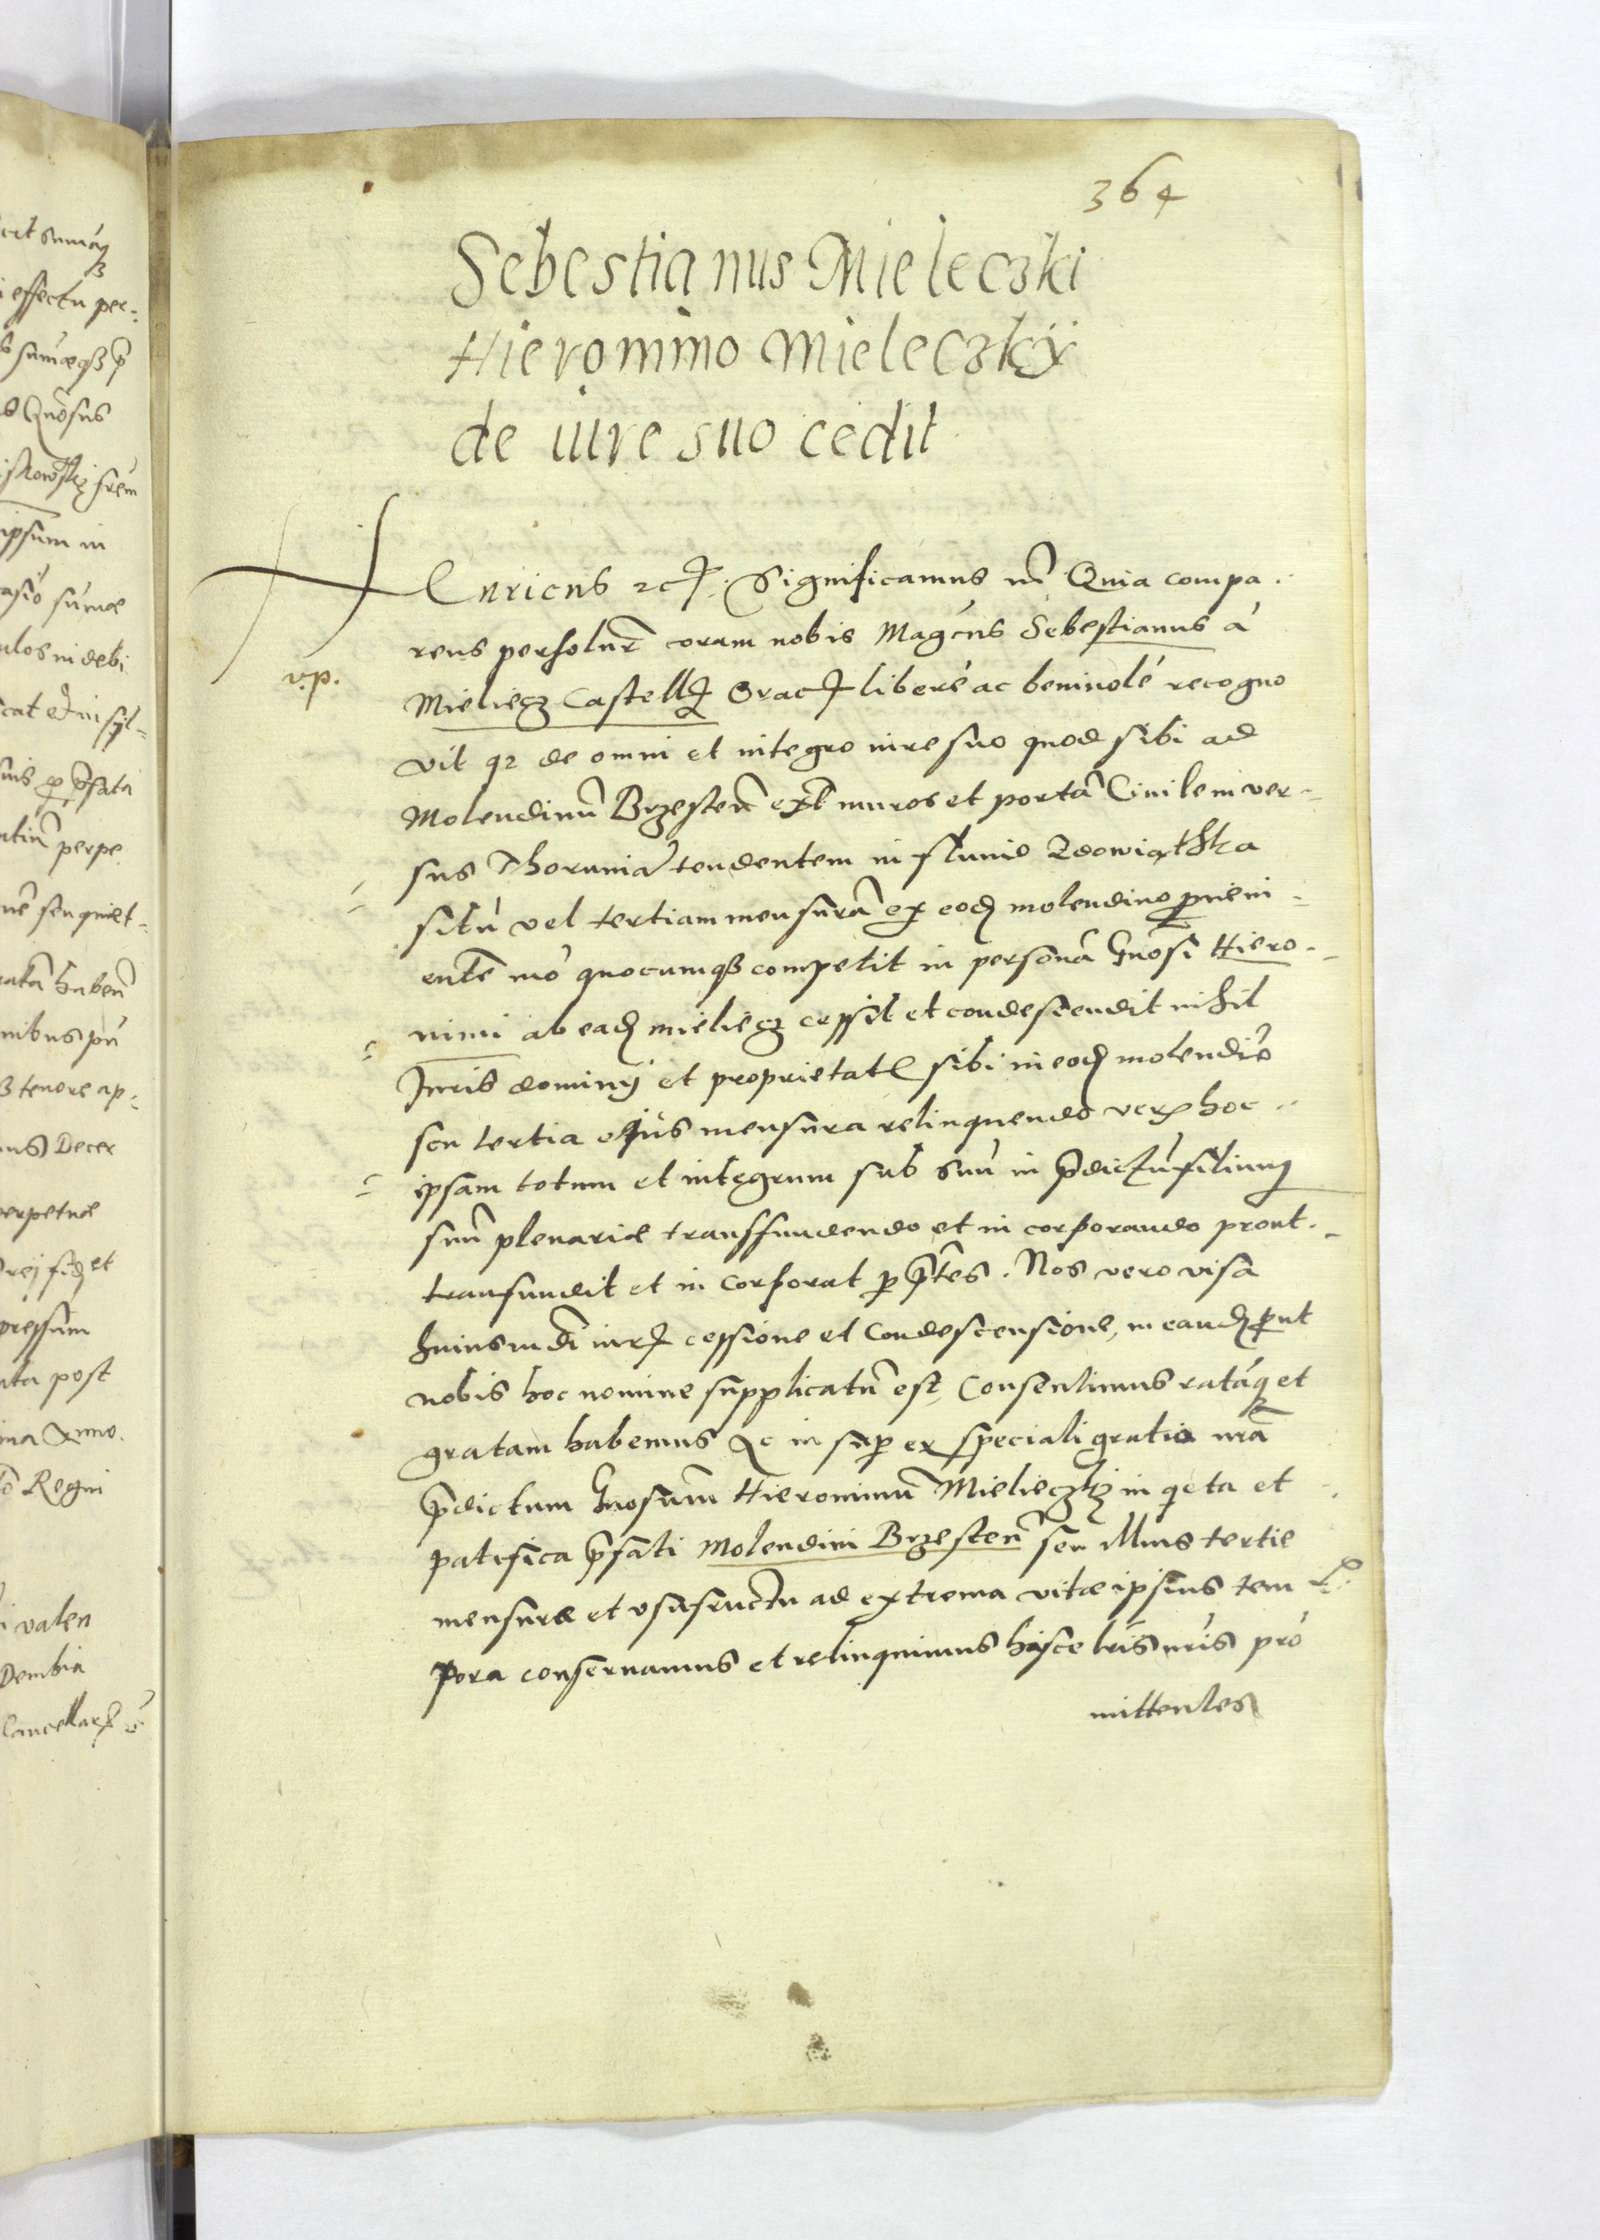 364
Sebestianus Mieleczki
Hieronimo Mieleczky
de iure suo cedit
Henricus etc. Significamus Quia compa
rens coram nobis Magcus Sebestianus á
v.p.
Mieliecz Castell liberé ac beniuolé recogno
vit qz de omni et integro iure suo quod sibi ad
Molendinū Brzesten extᵃ muros et portā Ciuilem ver=
sus Thoruniā tendentem in fluuio Zdowiąthka
sitū vel tertiam mensurā ex eod molendino proueni=
entē mō quocumqз competit in personā Gnosi Hiero=
nimi ab ead mieliecz cessit et condescendit nihil
Iuris dominij et proprietatę sibi in eod molendino
seu tertia eius mensura relinquendo hoc
ipsum totum et integrum suū in p̄dictū filium
suū plenarie transfundendo et in corporando prout
transfundit et in corporat p p̄ntes. Nos vero visa
huiusmōi iurę cessione et Condescensione, in eand prout
nobis hoc nomine supplicatū est, Consentimus ratāq et
gratam habemus Ac in sup ex speciali gratia nrā
p̄dictum Gnosum Hieronimū Mielieczkj in qeta et
patifica p̄fati Molendini Brzesten seu illius tertie
mensurae et vsufructu ad extrema vitae ipsius tem
pora conseruamus et relinquimus hisce lris nris pro
mittentes
effectu per=
ipsum in
perpe
tenore ap=
Decer
et
post
Regni
valen
Dembia